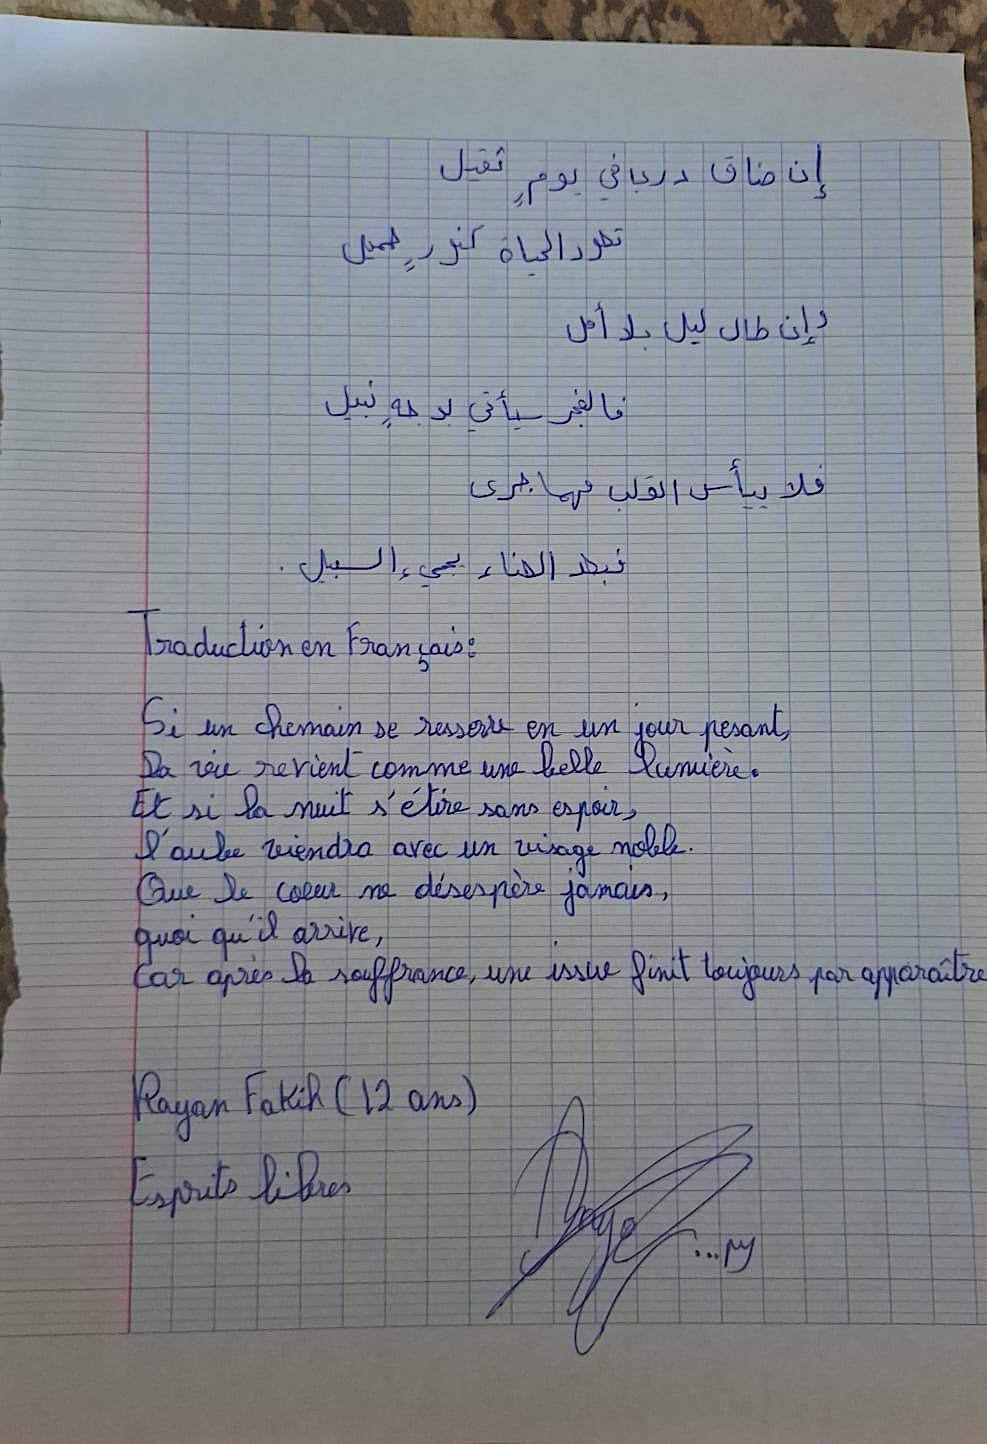 إن ضاق درب في يومٍ ثقيل
تعود الحياة كنورٍ جميل
وإن طال ليل بلا أمل
فالفجر سيأتي بوجهٍ نبيل
فلا ييأس القلب مهما جرى
فبعد العناء يجيء السبيل.
Traduction en Français:
Si un chemain se resserre en un jour pesant,
La vie revient comme une belle lumière.
Et si la nuit s'étire sans espoir,
l'aube viendra avec un visage noble.
Que le coeur ne désespère jamais,
quoi qu'il arrive,
Car après la souffrance, une issue finit toujours par apparaître
Rayan Fakih (12 ans)
Esprits libres